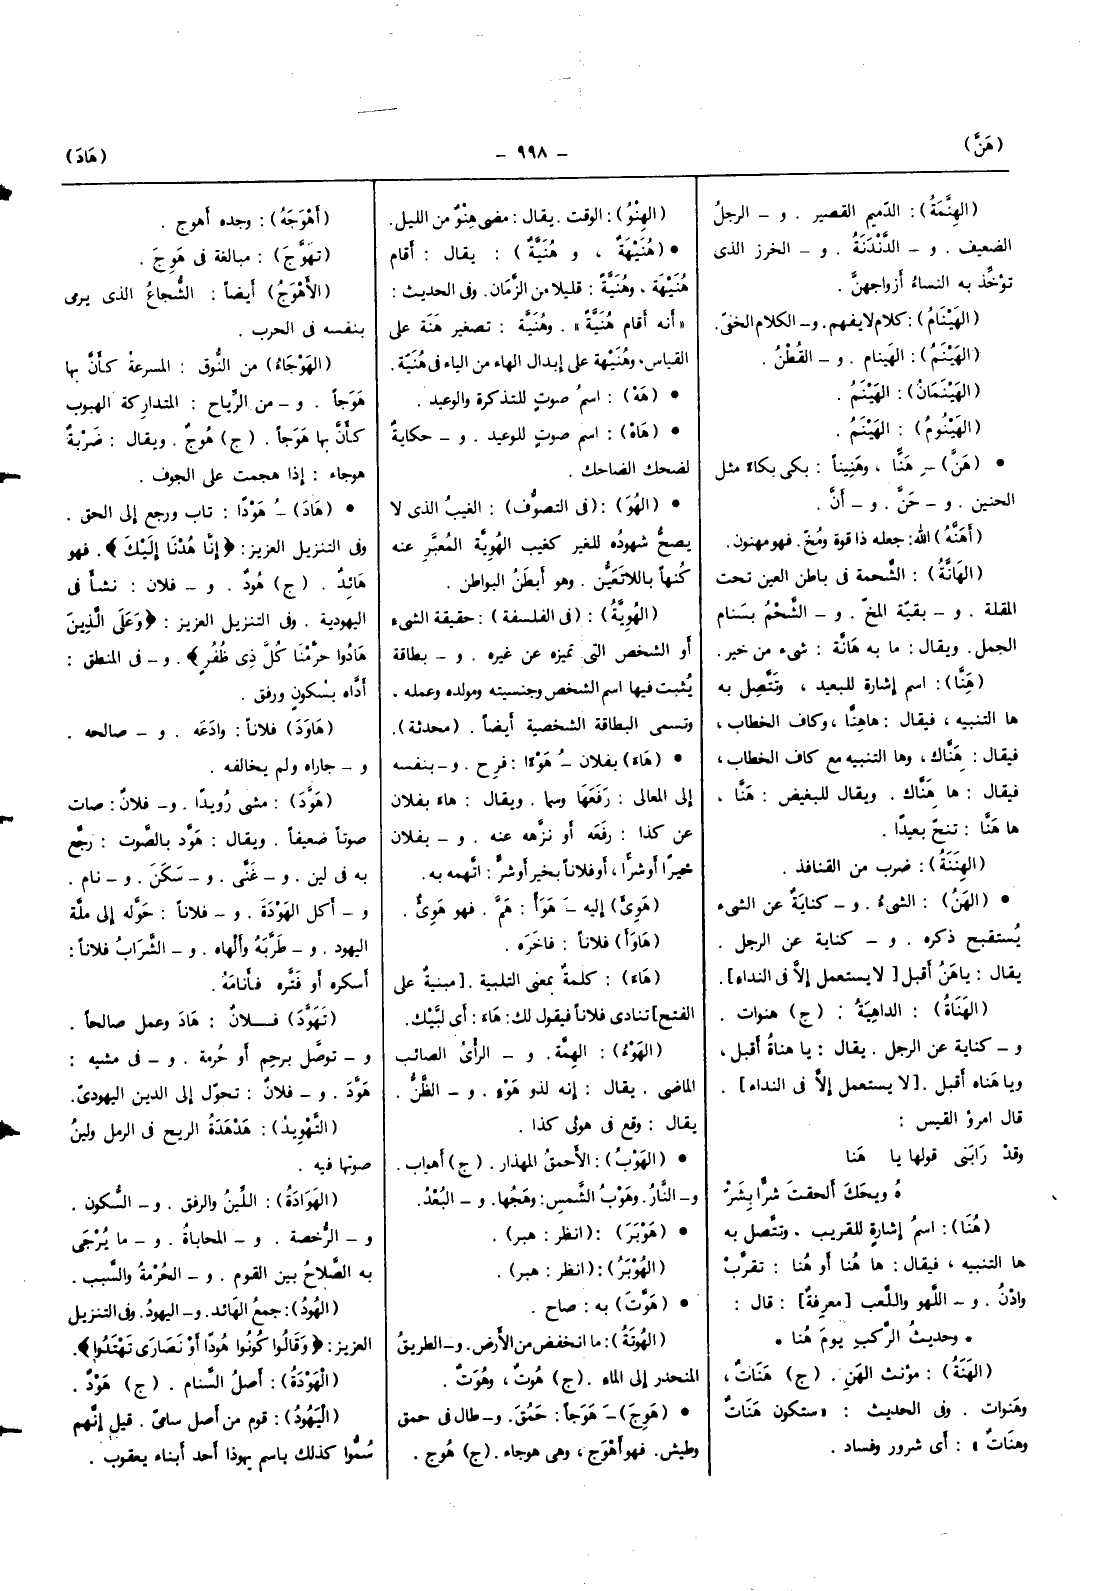 (هَنَّ)
- ٩٩٨ -
(هَادَ)
(الهِنَّمَةُ) : الدّميم القصير . و – الرجلُ
الضعيف . و – الدَّنْدَنَةُ . و – الخرز الذى
تؤخِّذ به النساءُ أزواجهنَّ .
(الهَيْنَامُ) : كلام لا يفهم. و– الكلام الخفىّ.
(الهَيْنَمُ) : الهَينام . و – القُطْنُ .
(الهَيْنَمَانُ) : الهَيْنَمُ .
(الهَيْنُومُ) : الهَيْنَمُ .
• (هَنَّ) –ِ هَنًّا ، وهَنِيناً : بكى بكاءً مثل
الحنين . و – حَنَّ . و – أَنَّ .
(أَهَنَّهُ) الله: جعله ذا قوة ومُخّ. فهو مهنون.
(الهَانَّةُ) : الشَّحمة فى باطن العين تحت
المقلة . و – بقيّة المخّ . و – الشَّحْمُ بسَنام
الجمل. ويقال: ما به هَانَّة : شىء من خير.
(هَنَّا) : اسم إشارة للبعيد ، وتَتَّصِل به
ها التنبيه ، فيقال : هاهِنَّا ، وكاف الخطاب ،
فيقال : هِنَّاك ، وها التنبيه مع كاف الخطاب ،
فيقال : ها هِنَّاك . ويقال للبغيض : هَنَّا ،
ها هَنَّا : تنحّ بعيدًا .
(الهِنَنَةُ) : ضرب من القنافذ .
• (الهَنُ) : الشىءُ . و – كنايَةٌ عن الشىء
يُستقبح ذكره . و – كناية عن الرجل .
يقال : ياهَنُ أقبل [ لا يستعمل إلاَّ فى النداء].
(الهَنَاةُ) : الداهِيَةُ . (ج) هنوات .
و – كناية عن الرجل . يقال : يا هناةُ أقبل ،
ويا هَناه أقبل . [لا يستعمل إلاَّ فى النداء] .
قال امرؤ القيس :
وقدْ رَابَنى قولها يا هَنا
هُ ويحَكَ ألحقتَ شرًّا بِشَرّْ
(هُنَا) : اسمُ إشارةٍ للقريب . وتتَّصل به
ها التنبيه ، فيقال : ها هُنا أو هُنا : تقرَّبْ
وادْنُ . و – اللَّهو واللَّعب [معرفةٌ] : قال :
• وحديثُ الرَّكبِ يومَ هُنا •
(الهَنَةُ) : مؤنث الهَنِ . (ج) هَنَاتٌ ،
وهَنوات . وفى الحديث : «ستكون هَنَاتٌ
وهنَاتٌ » : أى شرور وفساد .
(الهِنْوُ) : الوقت . يقال : مضى هِنْوٌ من الليل.
• (هُنَيْهَةٌ ، و هُنَيَّةٌ) : يقال : أقام
هُنَيْهَة ، وهُنَيَّةً : قليلا من الزَّمَان. وفى الحديث :
«أنه أقام هُنَيَّةً» . وهُنَيَّة : تصغير هَنَة على
القياس، وهُنَيْهة على إبدال الهاء من الياء فى هُنَيَّة.
• (هَهْ) : اسمُ صوتٍ للتذكرة والوعيد .
• (هَاهْ) : اسم صوتٍ للوعيد . و – حكايةٌ
لضحك الضاحك .
• (الهُوَ) : (فى التصوُّف) : الغيبُ الذى لا
يصحُّ شهودُه للغير كغيب الهُوِيَّة المُعبَّرِ عنه
كُنهاً باللاتَعَيُّن . وهو أَبطَنُ البواطن .
(الهُوِيَّةُ) : (فى الفلسفة) : حقيقة الشىء
أو الشخص التى تميزه عن غيره . و – بطاقة
يُثبت فيها اسم الشخص وجنسيته ومولده وعمله .
وتسمى البطاقة الشخصية أيضاً . (محدثة).
• (هَاءَ) بفلان –ُ هَوْءًا : فرِح . و–بنفسه
إلى المعالى : رَفَعَها وسما . ويقال : هاءَ بفلان
عن كذا : رفَعَه أو نزَّهه عنه . و – بفلان
خيرًا أو شرًّا ، أو فلاناً بخير أو شرٍّ : اتَّهمه به.
(هَوِئَ) إليه –َ هَوَأً : هَمَّ . فهو هَوِئٌ .
(هَاوَأَ) فلاناً : فاخَرَه .
(هَاءَ) : كلمةٌ بمعنى التلبية . [مبنيةٌ على
الفتح] تنادى فلاناً فيقول لك: هَاءَ : أى لبَّيْك.
(الهَوْءُ) : الهِمَّة. و – الرأْىُ الصائب
الماضى . يقال : إنه لذو هَوْءٍ . و – الظَّنُّ .
يقال : وقع فى هوئى كذا .
• (الهَوْبُ) : الأحمقُ المهذار . (ج) أهواب .
و– النَّارُ. وهَوْبُ الشَّمسِ: وهَجُها. و – البُعْدُ.
• (هَوْبَرَ) : (انظر : هبر) .
(الهَوْبَرُ) : (انظر : هبر) .
• (هَوَّتَ) به : صاح .
(الهُوتَةُ) : ما انخفض من الأَرض. و– الطريقُ
المنحدر إلى الماء . (ج) هُوتٌ ، وهُوَتٌ .
• (هَوِجَ) –َ هَوَجاً : حَمُقَ. و– طال فى حمق
وطيش. فهو أَهْوَج ، وهى هوجاء. (ج) هُوج .
(أَهْوَجَهُ) : وجده أهوج .
(تَهَوَّجَ) : مبالغة فى هَوِجَ .
(الأَهْوَجُ) أيضاً : الشُّجاعُ الذى يرمى
بنفسه فى الحرب .
(الهَوْجَاءُ) من النُّوق : المسرعةُ كأَنَّ بها
هَوَجاً . و – من الرِّياح : المتدارِكة الهبوب
كأَنَّ بها هَوَجاً . (ج) هُوجٌ . ويقال : ضَرْبَةٌ
هوجاء : إذا هجمت على الجوف .
• (هَادَ) –ُ هَوْدًا : تاب ورجع إلى الحق .
وفى التنزيل العزيز: ﴿إِنَّا هُدْنَا إِلَيْكَ﴾. فهو
هَائدٌ . (ج) هُودٌ . و – فلان : نشأَ فى
اليهودية . وفى التنزيل العزيز : ﴿وَعَلَى الَّذِينَ
هَادُوا حرَّمْنَا كُلَّ ذِى ظُفُرٍ﴾ . و – فى المنطق :
أَدَّاه بسْكونٍ ورفق .
(هَاوَدَ) فلاناً : وادَعَه . و – صالحه .
و – جاراه ولم يخالفه .
(هَوَّدَ) : مشى رُويدًا . و– فلانٌ : صات
صوتاً ضعيفاً . ويقال : هَوَّد بالصَّوت : رجَّع
به فى لين . و – غَنَّى . و – سَكَنَ . و – نام .
و – أكل الهَوْدَةَ . و – فلاناً : حَوَّله إلى ملَّة
اليهود . و – طَرَّبَهُ وأَلْهاه . و – الشَّرَابُ فلاناً :
أسكره أو فَتَّره فأَنامَهُ .
(تَهَوَّدَ) فلانٌ : هَادَ وعمل صالحاً .
و – توصَّل برحِم أو حُرمة . و – فى مشيه :
هَوَّدَ . و – فلانٌ : تحوّل إلى الدين اليهودىّ.
(التَّهْوِيدُ) : هَدْهَدَةُ الريح فى الرمل ولينُ
صوتها فيه .
(الهَوَادَةُ) : اللِّينُ والرفق . و – السُّكون .
و – الرُّخصة . و – المحاباةُ . و – ما يُرْجَى
به الصَّلاحُ بين القوم . و – الحُرْمةُ والسَّبب.
(الهُودُ) : جمعُ الهَائد. و– اليهودُ. وفى التنزيل
العزيز: ﴿وَقَالُوا كُونُوا هُودًا أَوْ نَصَارَى تَهْتَدُوا﴾.
(الْهَوْدَةُ) : أصلُ السَّنام . (ج) هَوْدٌ .
(الْيَهُودُ) : قوم من أصل سامىّ . قيل إنَّهم
سُمُّوا كذلك باسم يهوذا أحد أبناء يعقوب .